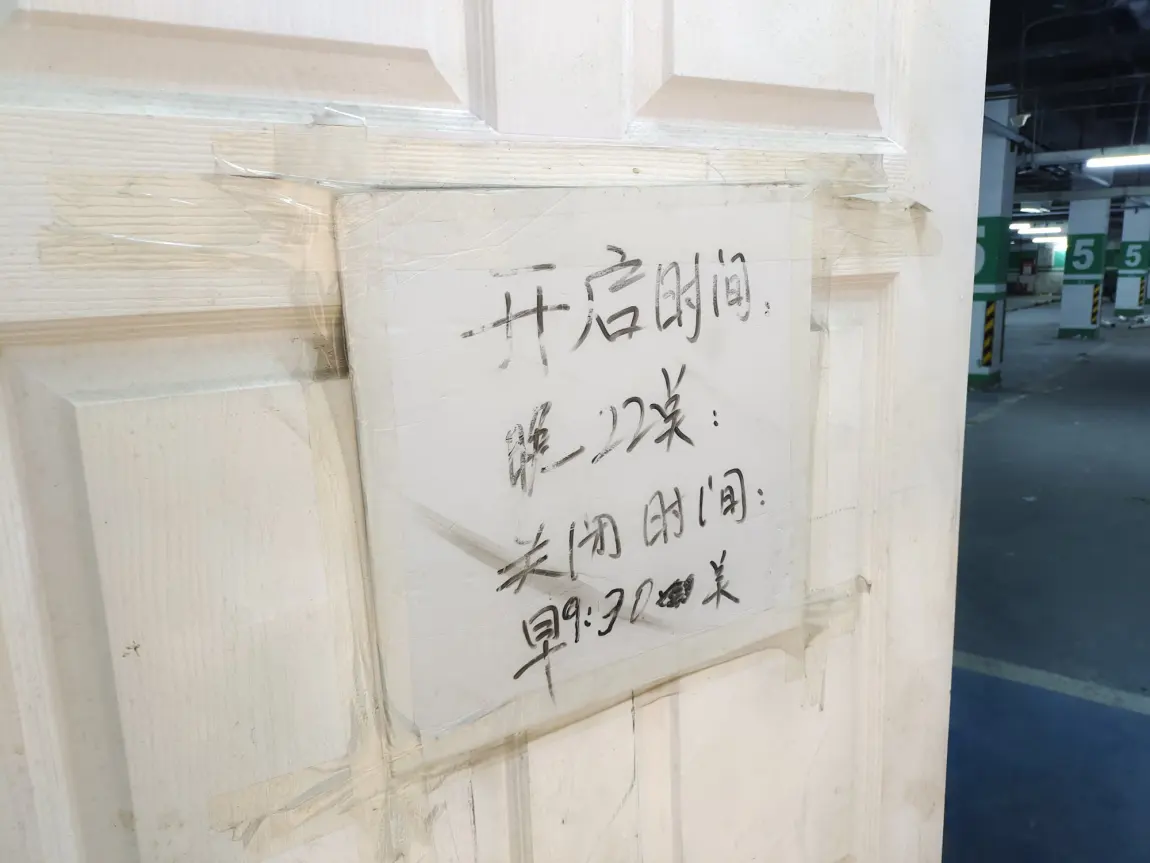 开启时间:
晚22点:
关闭时间:
早9:30关
5
5
5